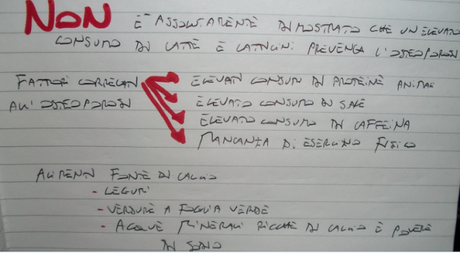 NON È ASSOLUTAMENTE DIMOSTRATO CHE UN ELEVATO
CONSUMO DI LATTE E LATTICINI PREVENGA L'OSTEOPOROSI
FATTORI CORRELATI
ALL'OSTEOPOROSI
ELEVATI CONSUMI DI PROTEINE ANIMALI
ELEVATO CONSUMO DI SALE
ELEVATO CONSUMO DI CAFFEINA
MANCANZA DI ESERCIZIO FISICO
ALIMENTI FONTE DI CALCIO
- LEGUMI
- VERDURE A FOGLIA VERDE
- ACQUE MINERALI RICCHE DI CALCIO E POVERE
DI SODIO